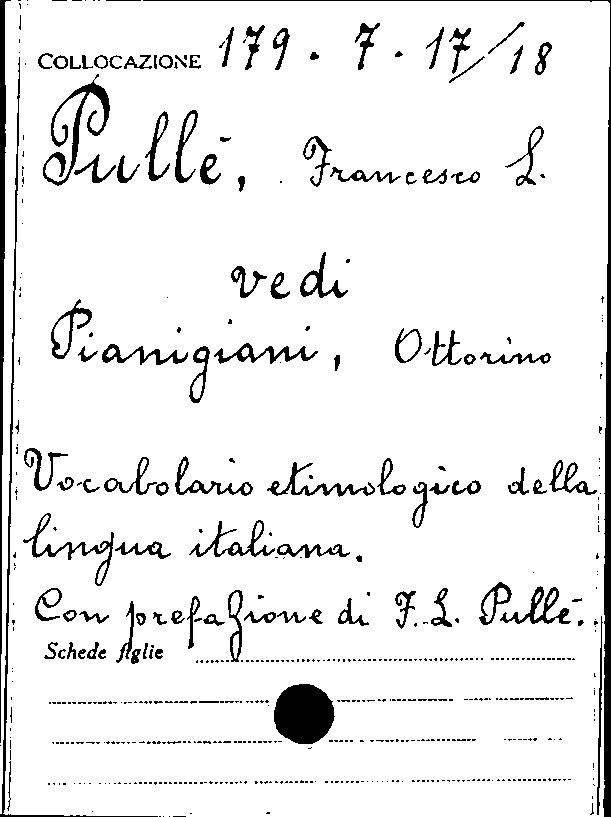 COLLOCAZIONE 179.7.17/18
Pullè, Francesco L.
vedi
Pianigiani, Ottorino
Vocabolario etimologico della
lingua italiana.
Con prefazione di F. L. Pullè.
Schede figlie